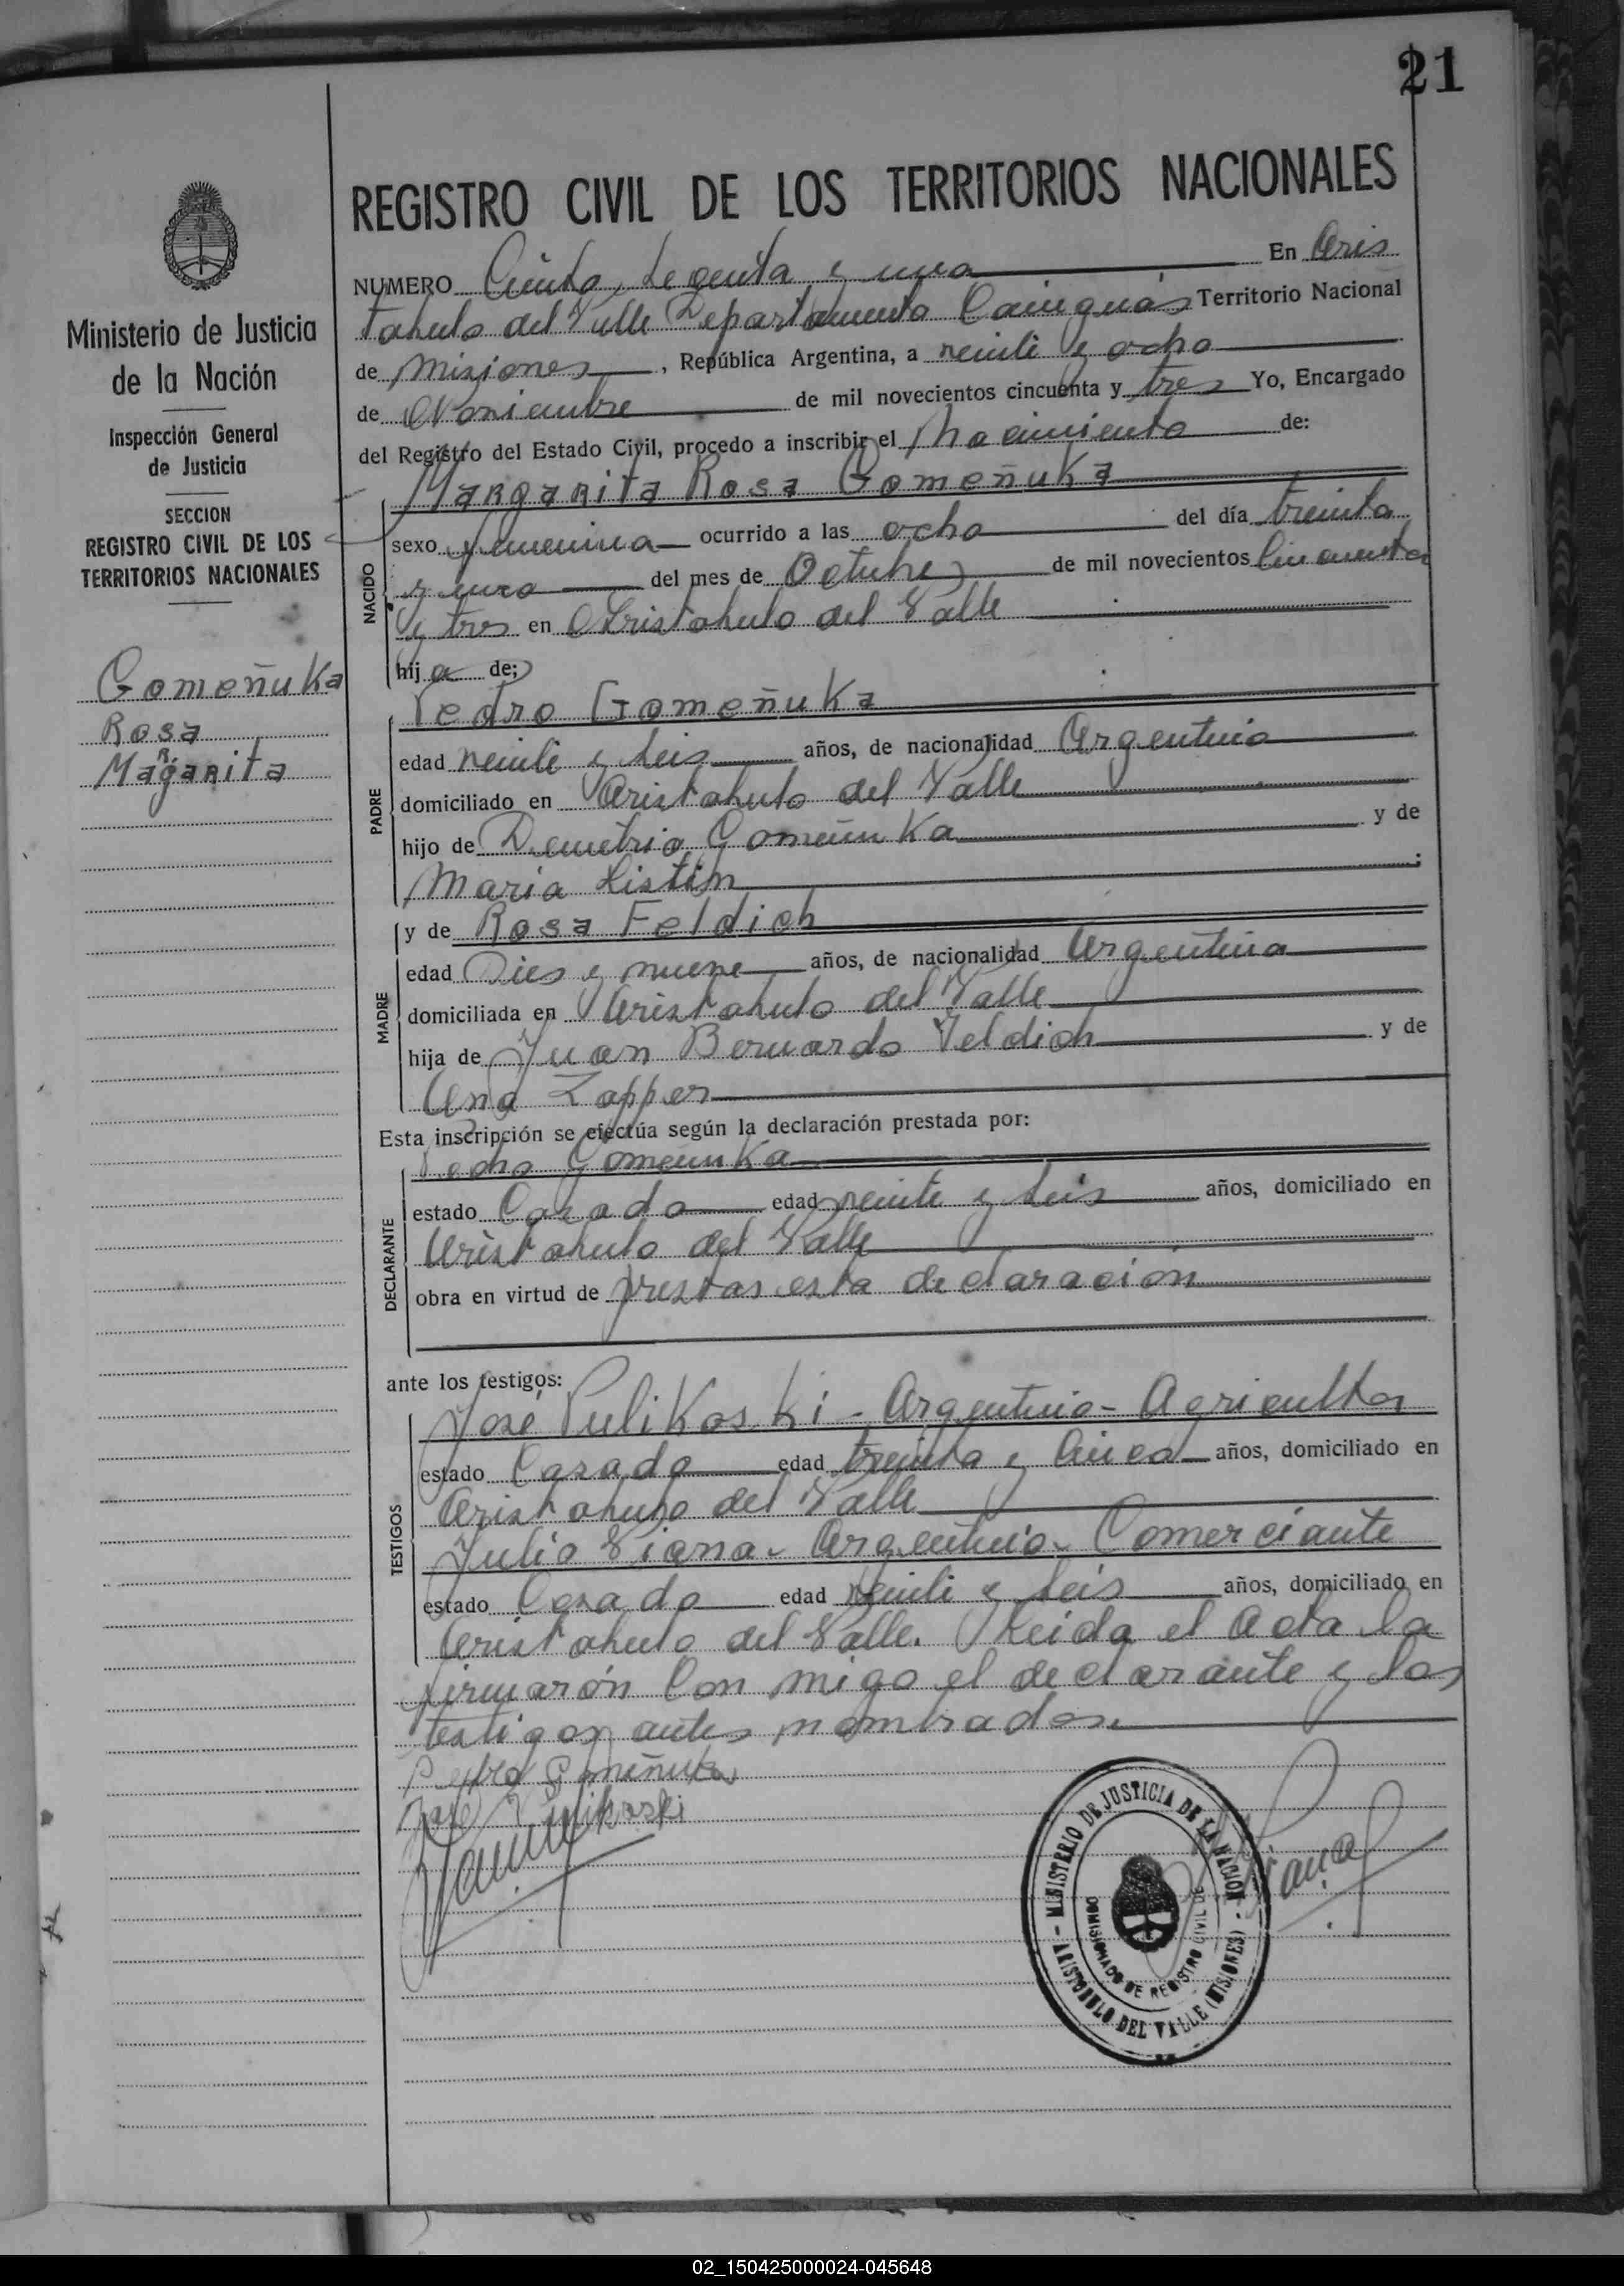 21
REGISTRO CIVIL DE LOS TERRITORIOS NACIONALES
NUMERO Ciento, sesenta y uno En Aris
tobulo del Valle Departamento Cainguás Territorio Nacional
de Misiones, República Argentina, a veinti y ocho
de Noviembre de mil novecientos cincuenta y tres Yo, Encargado
del Registro del Estado Civil, procedo a inscribir el Nacimiento de:
Margarita Rosa Gomeñuka
NACIDO
sexo femenina ocurrido a las ocho del día treinta
y uno del mes de Octubre de mil novecientos Cincuenta
y tres en Aristobulo del Valle
hija de;
PADRE
Pedro Gomeñuka
edad veinti y seis años, de nacionalidad Argentino
domiciliado en Aristobulo del Valle
hijo de Demetrio Gomeñuka y de
Maria
MADRE
y de Rosa Feldich
edad Dies y nueve años, de nacionalidad Argentina
domiciliada en Aristobulo del Valle
hija de Juan Bernardo Feldich y de
Ana Zapper
Esta inscripción se efectúa según la declaración prestada por:
DECLARANTE
Pedro Gomeñuka
estado Casado edad veinte y seis años, domiciliado en
Aristobulo del Valle
obra en virtud de prestar esta declaración
ante los testigos:
TESTIGOS
José PuliKosKi - Argentino - Agricultor
estado Casado edad treinta y cinco años, domiciliado en
Aristobulo del Valle
Julio Viana - Argentino - Comerciante
estado Casado edad veinti y seis años, domiciliado en
Aristobulo del Valle. Leida el Acta la
firmarón Con migo el declarante y los
testigos antes nombrados.
Pedro Gomiñuka
José Pulikoski
Viana
MINISTERIO DE JUSTICIA DE LA NACION
COMISIONADO DE REGISTRO CIVIL DE
ARISTOBULO DEL VALLE (MISIONES)
Ministerio de Justicia
de la Nación
Inspección General
de Justicia
SECCION
REGISTRO CIVIL DE LOS
TERRITORIOS NACIONALES
Gomeñuka
Rosa
Margarita
02_150425000024-045648